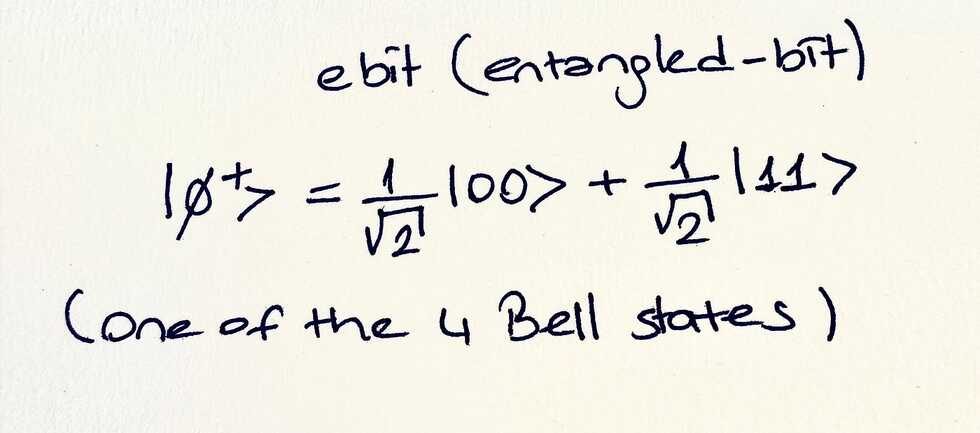 ebit (entangled-bit)
|ø⁺> = 1/√2 |00> + 1/√2 |11>
(one of the 4 Bell states)